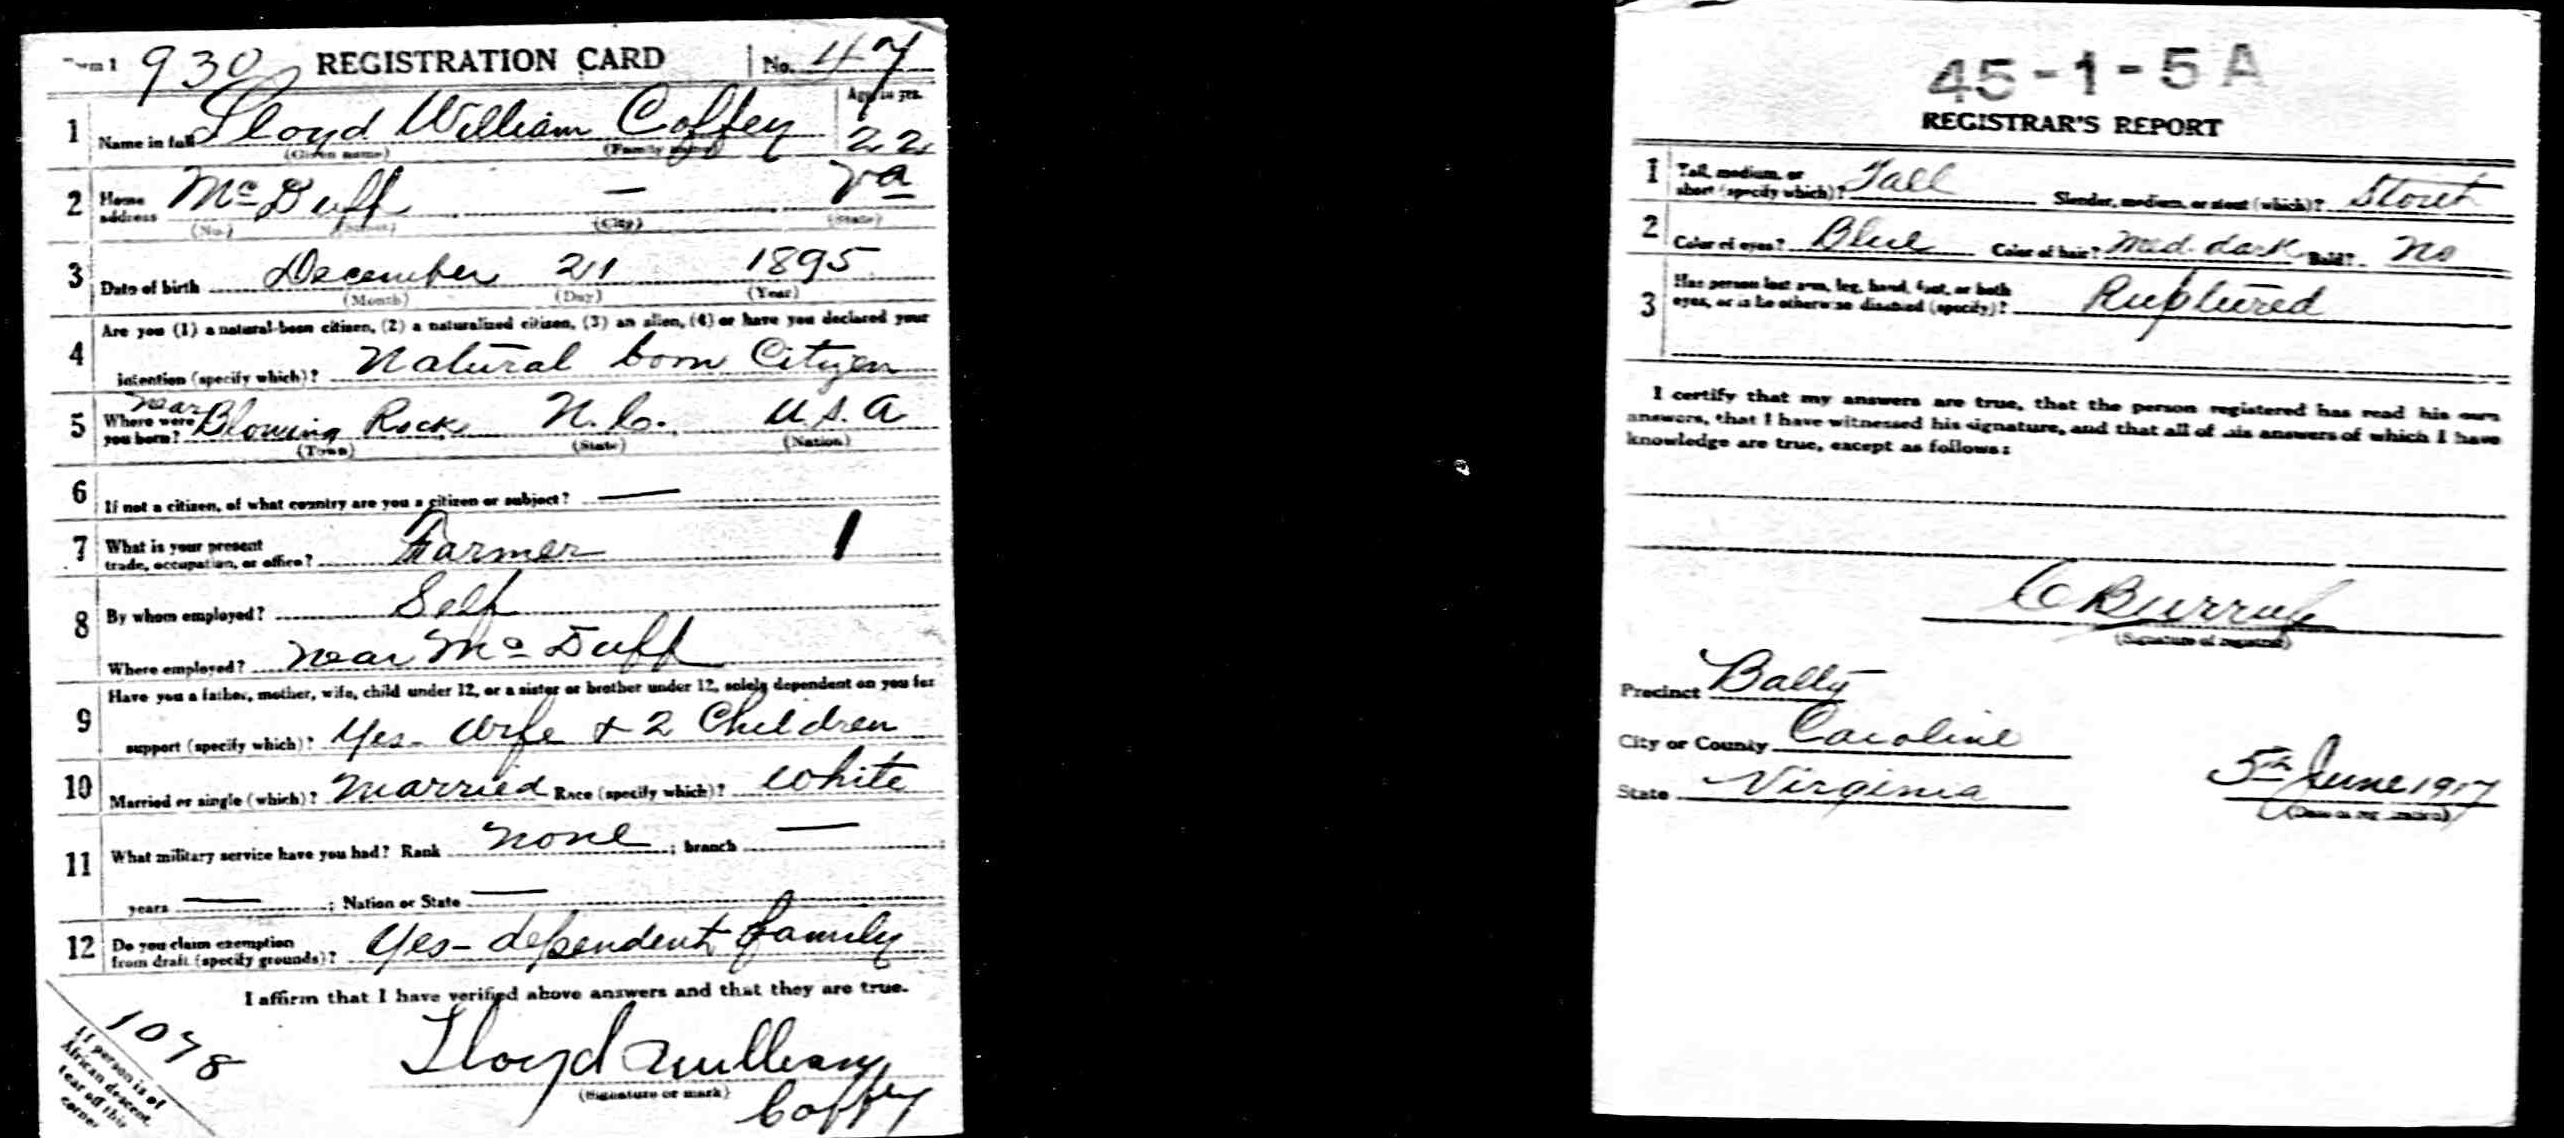 Form 1 930 REGISTRATION CARD No. 47
1 Name in full Lloyd William Coffey Age in yrs. 22
(Given name) (Family name)
2 Home address McDuff — Va
(No.) (Street) (City) (State)
3 Date of birth December 21 1895
(Month) (Day) (Year)
4 Are you (1) a natural-born citizen, (2) a naturalized citizen, (3) an alien, (4) or have you declared your
intention (specify which)? Natural born Citizen
5 Where were you born? near Blowing Rock N.C. U.S.A
(Town) (State) (Nation)
6 If not a citizen, of what country are you a citizen or subject? —
7 What is your present
trade, occupation, or office? Farmer 1
8 By whom employed? Self
Where employed? near McDuff
9 Have you a father, mother, wife, child under 12, or a sister or brother under 12, solely dependent on you for
support (specify which)? Yes - Wife + 2 Children
10 Married or single (which)? Married Race (specify which)? White
11 What military service have you had? Rank none ; branch —
years — ; Nation or State —
12 Do you claim exemption
from draft (specify grounds)? Yes - dependent family
I affirm that I have verified above answers and that they are true.
Lloyd William
(Signature or mark)
Coffey
1078
If person is of
African descent,
tear off this
corner
45-1-5 A
REGISTRAR'S REPORT
1 Tall, medium, or
short (specify which)? Tall Slender, medium, or stout (which)? Stout
2 Color of eyes? Blue Color of hair? Med. dark Bald? No
3 Has person lost arm, leg, hand, foot, or both
eyes, or is he otherwise disabled (specify)? Ruptured
I certify that my answers are true, that the person registered has read his own
answers, that I have witnessed his signature, and that all of his answers of which I have
knowledge are true, except as follows:
(Signature of registrar)
Precinct
City or County Caroline
State Virginia
5th June 1917
(Date of registration)